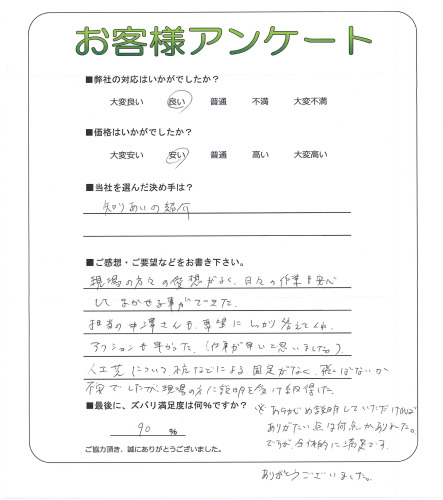 お客様アンケート
■弊社の対応はいかがでしたか?
大変良い 良い 普通 不満 大変不満
■価格はいかがでしたか?
大変安い 安い 普通 高い 大変高い
■当社を選んだ決め手は?
知りあいの紹介
■ご感想・ご要望などをお書き下さい。
現場の方々の愛想がよく、日々の作業も安心
して まかせる事ができた。
担当の中澤さんも、要望に しっかり 答えてくれ、
アクションも早かった。(仕事が早いと思いました)。
人工芝について、杭などによる 固定がなく、飛ばないか
不安でしたが、現場の方に説明を受け納得した。
■最後に、ズバリ満足度は何%ですか?
90 %
※ あらかじめ説明していただければ
ありがたい点は何点かありました。
ですが、全体的に満足です。
ご協力頂き、誠にありがとうございました。
ありがとうございました。